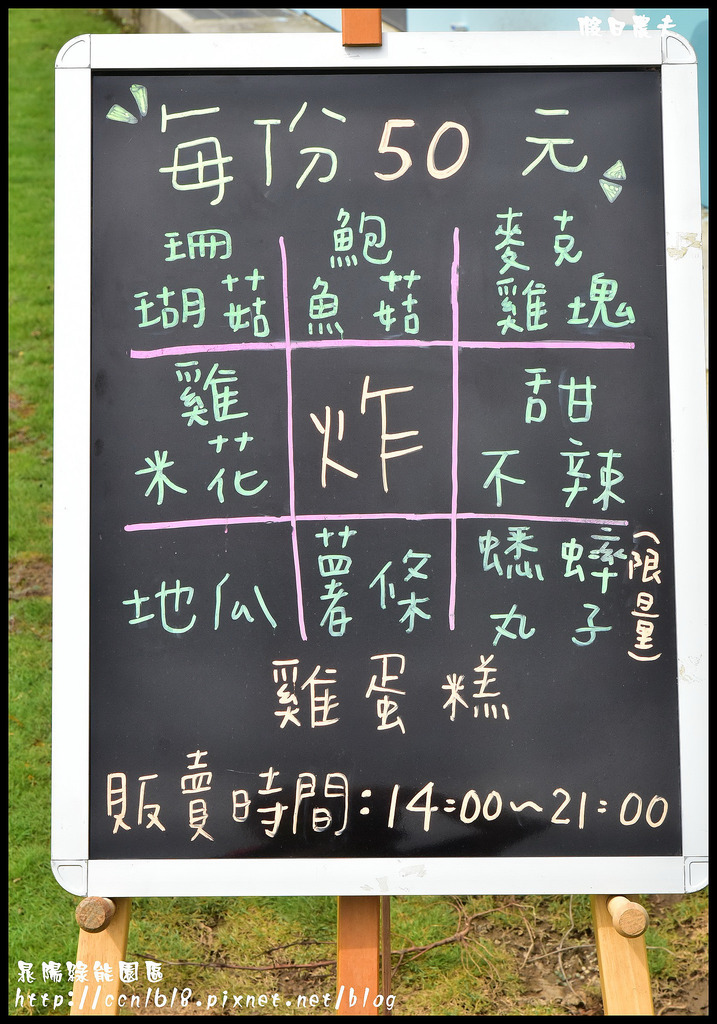 假日農夫
每份50元
珊瑚菇
鮑魚菇
麥克雞塊
雞米花
炸
甜不辣
地瓜
薯條
蟋蟀丸子
(限量)
雞蛋糕
販賣時間:14:00~21:00
晁陽綠能園區
http://ccnl618.pixnet.net/blog